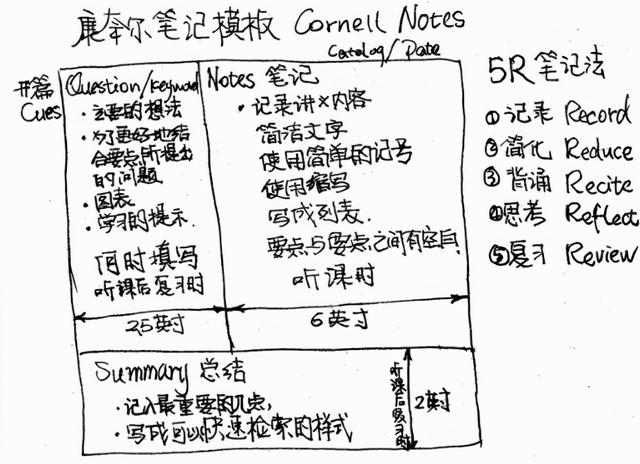 康奈尔笔记模板 Cornell Notes
Catalog/Date
开篇
Cues
Question/keyword
·主要的想法
·为了更好地结
合要点所提出
的问题
·图表
·学习的提示.
何时填写
听课后复习时
25英寸
Notes 笔记
·记录讲义内容
简洁文字
使用简单的记号
使用缩写
写成列表.
要点与要点之间有空白
听课时
6英寸
Summary 总结
·记入最重要的几点,
·写成可以快速检索的样式
听课后复习时
2英寸
5R 笔记法
①记录 Record
②简化 Reduce
③背诵 Recite
④思考 Reflect
⑤复习 Review